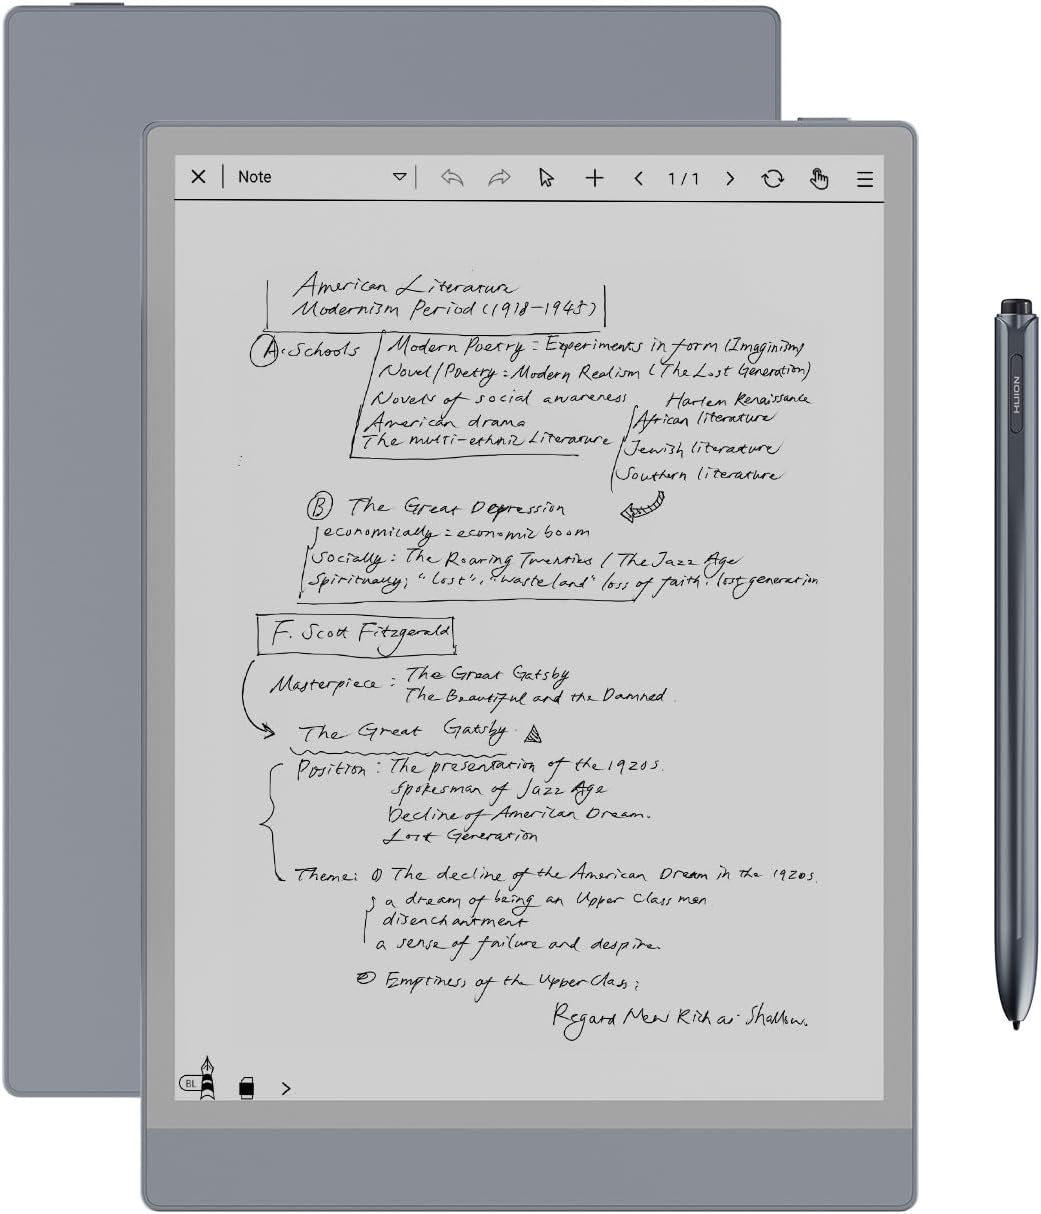 Note
1/1
American Literature
Modernism Period (1918-1945)
A. Schools
Modern Poetry: Experiments in form (Imaginism)
Novel/Poetry: Modern Realism (The Lost Generation)
Novels of social awareness
American drama
The multi-ethnic Literature
Harlem Renaissance
African literature
Jewish literature
Southern literature
B The Great Depression
economically: economic boom
Socially: The Roaring Twenties / The Jazz Age
Spiritually: "Lost", "wasteland" loss of faith, lost generation
F. Scott Fitzgerald
Masterpiece: The Great Gatsby
The Beautiful and the Damned.
The Great Gatsby
Position: The presentation of the 1920s.
Spokesman of Jazz Age
Decline of American Dream.
Lost Generation
Theme: ① The decline of the American Dream in the 1920s.
a dream of being an Upper Class man
disenchantment
a sense of failure and despire.
② Emptiness of the Upper Class;
Regard New Rich as Shallow.
BL
HUION